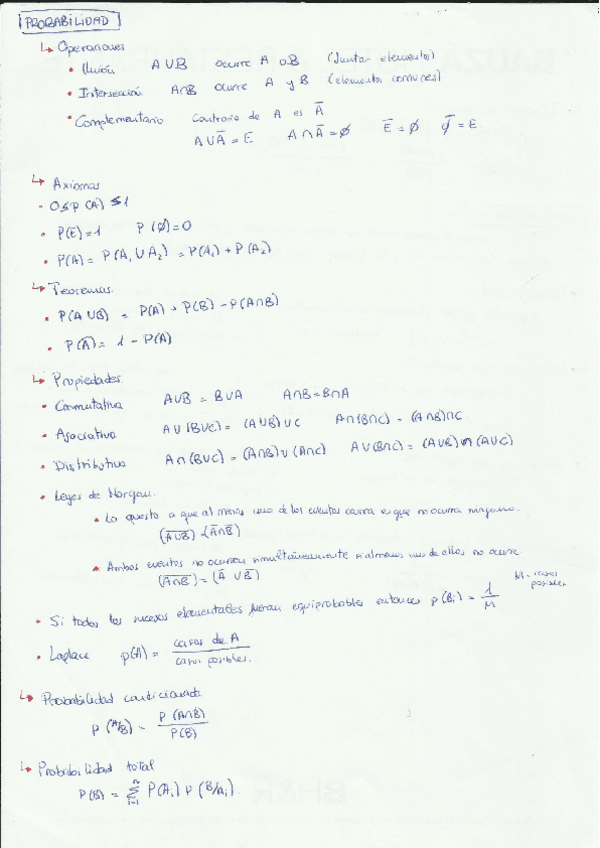 PROBABILIDAD
↳ Operaciones
• Unión A∪B ocurre A o B (Juntar elementos)
• Intersección A∩B ocurre A y B (elementos comunes)
• Complementario Contrario de A es A̅
A∪A̅ = E A∩A̅ = ∅ E̅ = ∅ ∅̅ = E
↳ Axiomas
• 0≤p(A)≤1
• P(E)=1 P(∅)=0
• P(A) = P(A₁∪A₂) = P(A₁)+P(A₂)
↳ Teoremas.
• P(A∪B) = P(A)+P(B)-P(A∩B)
• P(A̅) = 1 - P(A)
↳ Propiedades.
• Conmutativa A∪B = B∪A A∩B = B∩A
• Asociativa A∪(B∪C) = (A∪B)∪C A∩(B∩C) = (A∩B)∩C
• Distributiva A∩(B∪C) = (A∩B)∪(A∩C) A∪(B∩C) = (A∪B)∩(A∪C)
• Leyes de Morgan.
• Lo opuesto a que al menos uno de los eventos ocurra es que no ocurra ninguno.
(A̅∪̅B̅) = (A̅∩B̅)
• Ambos eventos no ocurren simultáneamente si al menos uno de ellos no ocurre
(A̅∩̅B̅) = (A̅∪B̅)
• Si todos los sucesos elementales fueran equiprobables entonces p(Bi) = 1/M M=casos posibles
• Laplace p(A) = casos de A / casos posibles.
↳ Probabilidad condicionada
P(A/B) = P(A∩B) / P(B)
↳ Probabilidad total
P(B) = Σⁿᵢ₌₁ P(Ai) P(B/Ai)